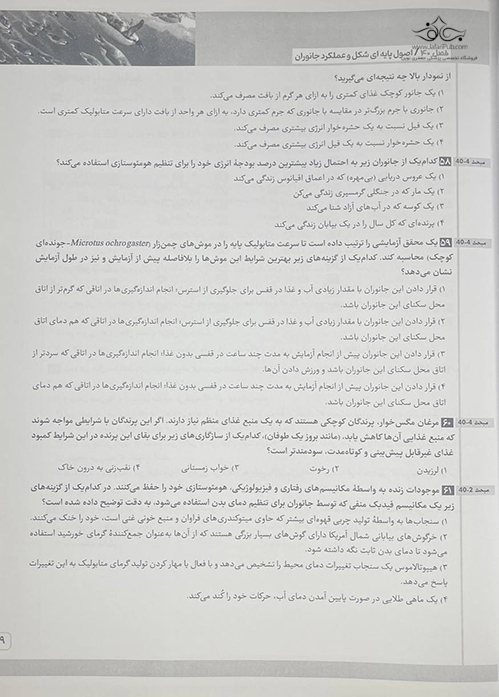 www.JafariPub.com
فصل ۴۰ / اصول پایه ای شکل و عملکرد جانوران
فروشگاه تخصصی پزشکی جعفری نوین
از نمودار بالا چه نتیجه‌ای می‌گیرید؟
۱) یک جانور کوچک غذای کمتری را به ازای هر گرم از بافت مصرف می‌کند.
۲) جانوری با جرم بزرگ‌تر در مقایسه با جانوری که جرم کمتری دارد، به ازای هر واحد از بافت دارای سرعت متابولیک کمتری است.
۳) یک فیل نسبت به یک حشره‌خوار انرژی بیشتری مصرف می‌کند.
۴) یک حشره‌خوار نسبت به یک فیل انرژی بیشتری مصرف می‌کند.
مبحث 4-40 ۵۸ کدام‌یک از جانوران زیر به احتمال زیاد بیشترین درصد بودجهٔ انرژی خود را برای تنظیم هومئوستازی استفاده می‌کند؟
۱) یک عروس دریایی (بی‌مهره) که در اعماق اقیانوس زندگی می‌کند
۲) یک مار که در جنگلی گرمسیری زندگی می‌کن
۳) یک کوسه که در آب‌های آزاد شنا می‌کند
۴) پرنده‌ای که کل سال را در یک بیابان زندگی می‌کند
مبحث 4-40 ۵۹ یک محقق آزمایشی را ترتیب داده است تا سرعت متابولیک پایه را در موش‌های چمن‌زار (Microtus ochrogaster-جونده‌ای
کوچک) محاسبه کند. کدام‌یک از گزینه‌های زیر بهترین شرایط این موش‌ها را بلافاصله پیش از آزمایش و نیز در طول آزمایش
نشان می‌دهد؟
۱) قرار دادن این جانوران با مقدار زیادی آب و غذا در قفس برای جلوگیری از استرس؛ انجام اندازه‌گیری‌ها در اتاقی که گرم‌تر از اتاق
محل سکنای این جانوران باشد.
۲) قرار دادن این جانوران با مقدار زیادی آب و غذا در قفس برای جلوگیری از استرس؛ انجام اندازه‌گیری‌ها در اتاقی که هم دمای اتاق
محل سکنای این جانوران باشد.
۳) قرار دادن این جانوران پیش از انجام آزمایش به مدت چند ساعت در قفسی بدون غذا؛ انجام اندازه‌گیری‌ها در اتاقی که سردتر از
اتاق محل سکنای این جانوران باشد و ورزش دادن آن‌ها.
۴) قرار دادن این جانوران پیش از انجام آزمایش به مدت چند ساعت در قفسی بدون غذا؛ انجام اندازه‌گیری‌ها در اتاقی که هم دمای
اتاق محل سکنای این جانوران باشد.
مبحث 4-40 ۶۰ مرغان مگس‌خوار، پرندگان کوچکی هستند که به یک منبع غذای منظم نیاز دارند. اگر این پرندگان با شرایطی مواجه شوند
که منبع غذایی آن‌ها کاهش یابد، (مانند بروز یک طوفان)، کدام‌یک از سازگاری‌های زیر برای بقای این پرنده در این شرایط کمبود
غذای غیرقابل پیش‌بینی و کوتاه‌مدت، سودمندتر است؟
۱) لرزیدن ۲) رخوت ۳) خواب زمستانی ۴) نقب‌زنی به درون خاک
مبحث 2-40 ۶۱ موجودات زنده به واسطهٔ مکانیسم‌های رفتاری و فیزیولوژیکی، هومئوستازی خود را حفظ می‌کنند. در کدام‌یک از گزینه‌های
زیر یک مکانیسم فیدبک منفی که توسط جانوران برای تنظیم دمای بدن استفاده می‌شود، به دقت توضیح داده شده است؟
۱) سنجاب‌ها به واسطهٔ تولید چربی قهوه‌ای بیشتر که حاوی میتوکندری‌های فراوان و منبع خونی غنی است، خود را خنک می‌کنند.
۲) خرگوش‌های بیابانی شمال آمریکا دارای گوش‌های بسیار بزرگی هستند که از آن‌ها به‌عنوان جمع‌کنندهٔ گرمای خورشید استفاده
می‌شود تا دمای بدن ثابت نگه داشته شود.
۳) هیپوتالاموس یک سنجاب تغییرات دمای محیط را تشخیص می‌دهد و با فعال یا مهار کردن تولید گرمای متابولیک به این تغییرات
پاسخ می‌دهد.
۴) یک ماهی طلایی در صورت پایین آمدن دمای آب، حرکات خود را کُند می‌کند.